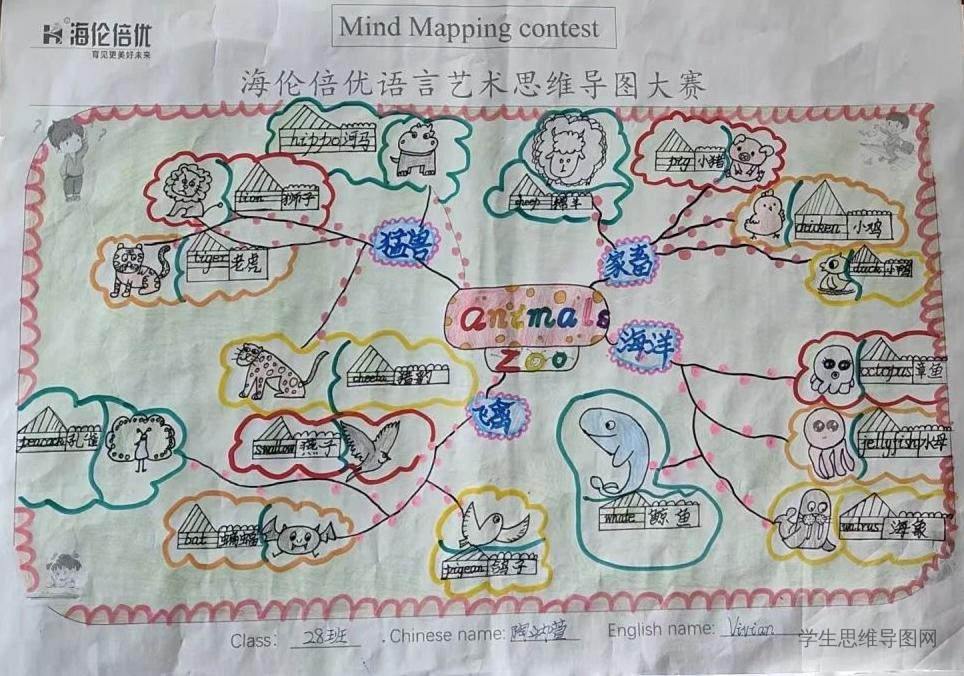 海伦倍优
育见更美好未来
Mind Mapping contest
海伦倍优语言艺术思维导图大赛
hippo 河马
lion 狮子
tiger 老虎
猛兽
cheeta 猎豹
sheep 绵羊
pig 小猪
chicken 小鸡
duck 小鸭
家畜
animals
zoo
海洋
octopus 章鱼
jellyfish 水母
walrus 海象
whale 鲸鱼
飞禽
peacock 孔雀
swallow 燕子
bat 蝙蝠
pigeon 鸽子
Class: 28班 . Chinese name: English name: Vivian
学生思维导图网